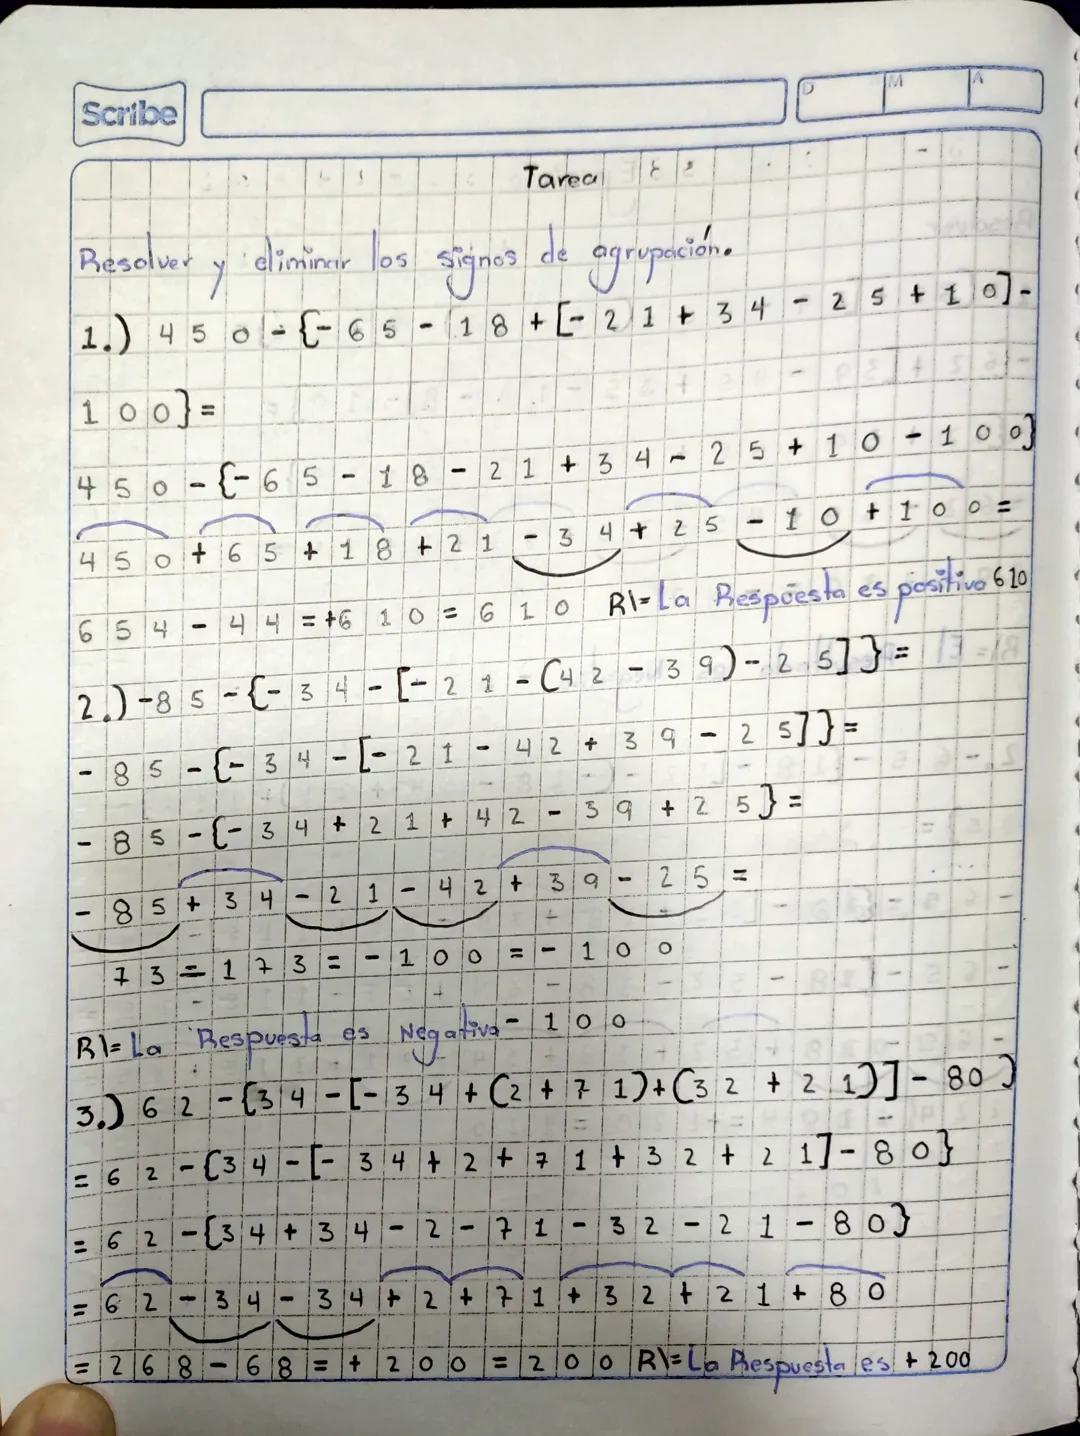 Scribe
D M A
Tarea
Resolver y eliminar los signos de agrupación.
1.) 450-{-65-18+[-21+34-25+10]-
100}=
450-{-65-18-21+34-25+10-100}
450+65+18+21-34+25-10+100=
654-44=+610=610 R\=La Respuesta es positiva 610
2.) -85-{-34-[-21-(42-39)-25]}=
-85-{-34-[-21-42+39-25]}=
-85-{-34+21+42-39+25}=
-85+34-21-42+39-25=
73=173=-100=-100
R\=La Respuesta es Negativa -100
3.) 62-{34-[-34+(2+71)+(32+21)]-80}
=62-{34-[-34+2+71+32+21]-80}
=62-{34+34-2-71-32-21-80}
=62-34-34+2+71+32+21+80
=268-68=+200=200 R\=La Respuesta es +200